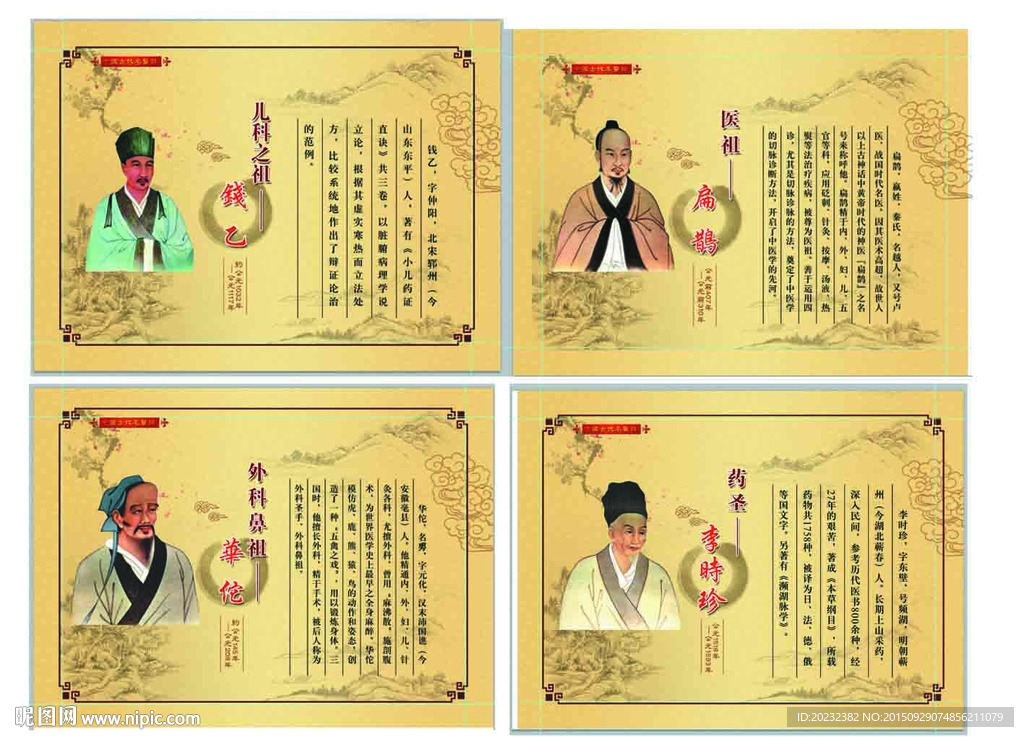 儿科之祖——
錢乙
约公元1032年
—公元1117年
钱乙，字仲阳，北宋郓州（今
山东东平）人，著有《小儿药证
直诀》共三卷，以脏腑病理学说
立论，根据其虚实寒热而立法处
方，比较系统地作出了辩证论治
的范例。
医祖——
扁鵲
公元前407年
—公元前310年
扁鹊，嬴姓，秦氏，名越人，又号卢
医，战国时代名医。因其医术高超，故世人
以上古神话中黄帝时代的神医「扁鹊」之名
号来称呼他。扁鹊精于内、外、妇、儿、五
官等科，应用砭刺、针灸、按摩、汤液、热
熨等法治疗疾病，被尊为医祖。善于运用四
诊，尤其是切脉诊脉的方法，奠定了中医学
的切脉诊断方法，开启了中医学的先河。
外科鼻祖——
華佗
约公元145年
—公元208年
华佗，名旉，字元化，汉末沛国谯（今
安徽亳县）人。他精通内、外、妇、儿、针
灸各科，尤擅外科，曾用“麻沸散”施剖腹
术，为世界医学史上最早之全身麻醉。华佗
模仿虎、鹿、熊、猿、鸟的动作和姿态，创
造了一种“五禽之戏”，用以锻炼身体。三
国时，他擅长外科，精于手术，被后人称为
外科圣手、外科鼻祖。
药圣——
李時珍
公元1518年
—公元1593年
李时珍，字东壁，号频湖，明朝蕲
州（今湖北蕲春）人。长期上山采药，
深入民间，参考历代医书800余种，经
27年的艰苦，著成《本草纲目》，所载
药物共1758种，被译为日、法、德、俄
等国文字。另著有《濒湖脉学》。
昵图网 www.nipic.com
ID:20232382 NO:20150929074856211079